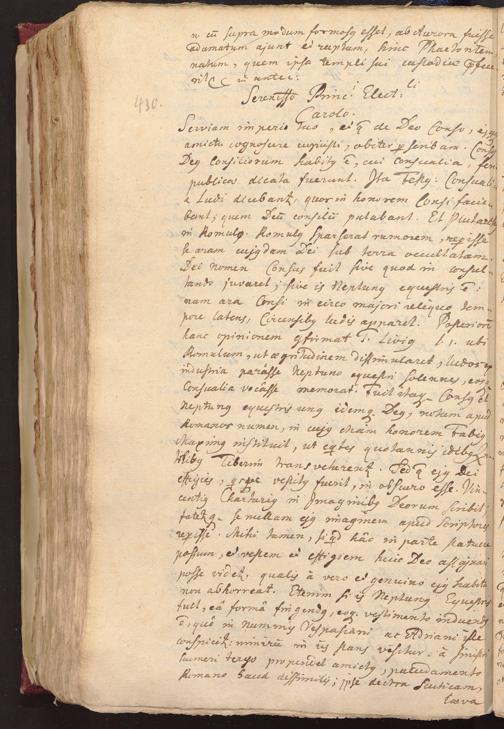 n cũ supra modum formosꝯ esset, ab Aurora fuisse
adamatum ajunt et raptum, hinc Phaetontem
natum, quem ipsa templi sui custodem
Sereniss. Princ. Elect:
430.
Carolo.
Serviam imperio tuo, et de Deo Conso,
amictu cognoscere cupisti, obiter scribam.
Deꝯ Consiliorum habitꝯ ē, cui consualia,
publicè dicata fuerunt. Ita Festꝯ: Consual
Ludi dicebant, quos in honorem Consi facie
bant, quem Deũ consilii putabant. Et Plutarchꝯ
in Romulo: Romulꝯ sparserat rumorem, reperisse
se aram cujusdam Dei sub terra occultatam.
Dei nomen Consus fuit sive quod in consul
tando juvaret, sive is Neptunꝯ equestris ē:
nam ara Consi in circo majori reliquo tem-
pore latens, Circensibꝯ ludis apparet. Posteriorem
hanc opinionem T. Liviꝯ l. 1. ubi
Romulum, ut aegritudinem dissimularet, ludos ex
industria parasse Neptuno equestri solennes, eosq
Consualia vocasse memorat. Fuit itaq Consꝯ et
Neptunꝯ equestris unꝯ idemq Deꝯ, notum apud
Romanos numen, in cujꝯ etiam honorem Fabiꝯ
Maximꝯ instituit, ut quotannis
Tiberim Sed ejꝯ Dei
effigies, vestitꝯ fuerit, in obscuro esse. Vin-
centiꝯ Chartariꝯ in Imaginibꝯ Deorum scribit,
se nullam ejꝯ imaginem apud Scriptores
reperisse. Mihi tamen, si quid hac in parte statuere
possum, et vestem et effigiem huic Deo assignari
posse videtur, qualis à vero et genuino ejꝯ habitu
non abhorreat. Etenim si is Neptunꝯ Equestris
fuit, eâ formâ fingendꝯ, eoq vestimento induendꝯ
ē, quo in nummis Vespasiani ac Adriani iste
conspicitur: nimirũ in iis stans visitur: à sinistri
humeri tergo propendet amictꝯ, paludamento
Romano haud dissimilis; ipse dextra Scuticam,
laeva